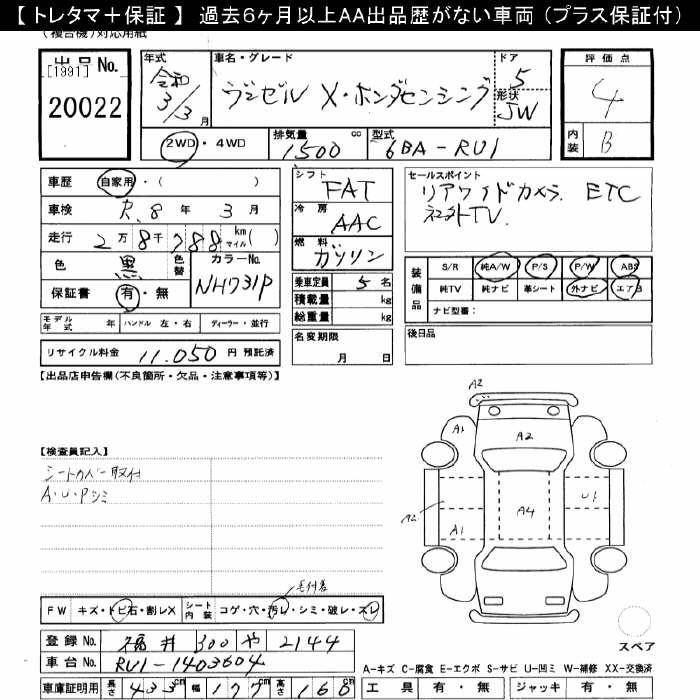 【 トレタマ＋保証 】 過去6ヶ月以上AA出品歴がない車両（プラス保証付）
(複合機)対応用紙
出品No.
[1991]
20022
年式
令和
3/3月
車名・グレード
ヴェゼル X・ホンダセンシング
ドア
5
形状
5W
2WD・4WD
排気量
1500 cc
型式
6BA-RU1
評価点
4
内装
B
車歴 自家用・( )
車検 R.8年 3月
走行 2万8千788 km マイル( )
色 黒 色替
カラーNo.
NH731P
保証書 有・無
シフト
FAT
冷房
AAC
燃料
ガソリン
乗車定員 5名
積載量 kg
総重量 kg
名変期限
月 日
セールスポイント
リアワイドカメラ. ETC
社外TV.
装備品
S/R 純A/W P/S P/W ABS
純TV 純ナビ 革シート 外ナビ エアB
ナビ型番：
後日品
モデル年式 年 ハンドル 左・右 ディーラー・並行
リサイクル料金 11.050 円 預託済
【出品店申告欄(不良箇所・欠品・注意事項等)】
【検査員記入】
シートカバー取付
A・U・Pシミ
A2
A1
A2
A2
A1
A4
U1
毛付着
FW キズ・トビ石・割レX
シート内装 コゲ・穴・汚レ・シミ・破レ・スレ
スペア
登録No. 福井 300 や 2144
車台No. RU1-1403604
車庫証明用 長さ 433cm 幅 177cm 高さ 160cm
A-キズ C-腐食 E-エクボ S-サビ U-凹ミ W-補修 XX-交換済
工具 有・無 ジャッキ 有・無